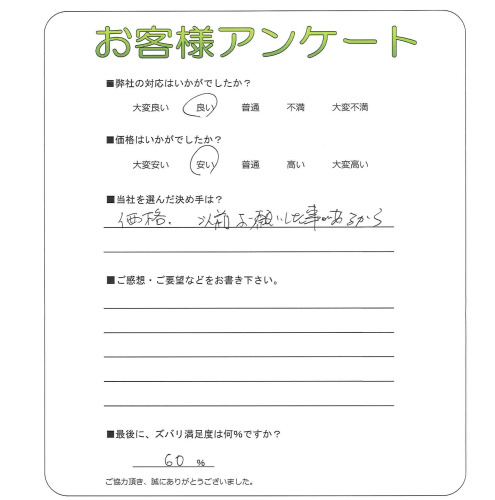 お客様アンケート
■弊社の対応はいかがでしたか？
大変良い 良い 普通 不満 大変不満
■価格はいかがでしたか？
大変安い 安い 普通 高い 大変高い
■当社を選んだ決め手は？
価格. 以前お願いした事があるから
■ご感想・ご要望などをお書き下さい。
■最後に、ズバリ満足度は何%ですか？
60 %
ご協力頂き、誠にありがとうございました。